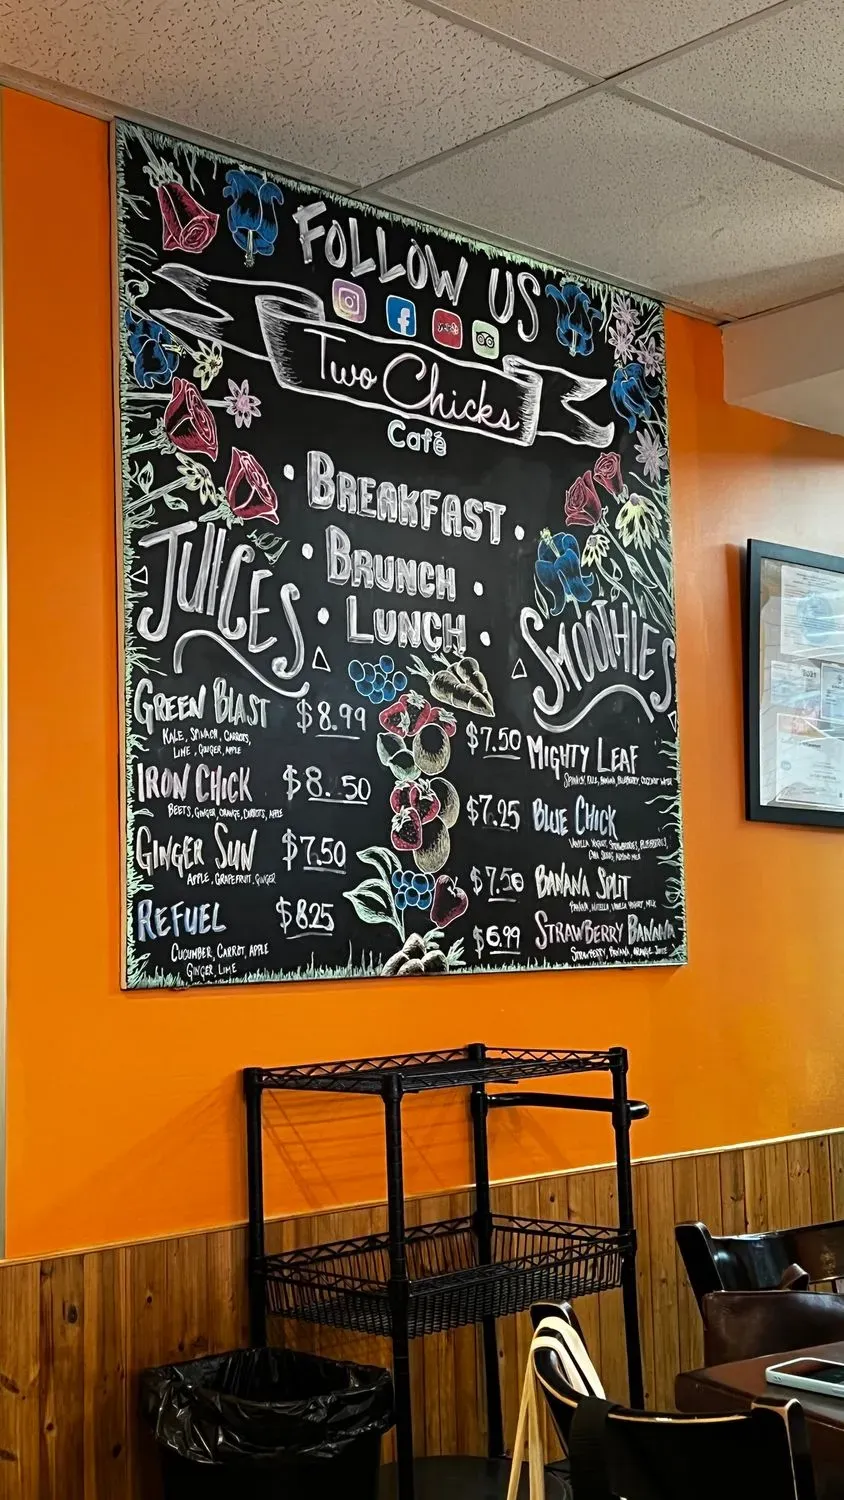 FOLLOW US
Two Chicks
Café
• BREAKFAST •
• BRUNCH •
• LUNCH •
JUICES
GREEN BLAST $8.99
KALE, SPINACH, CARROTS,
LIME, GINGER, APPLE
IRON CHICK $8.50
BEETS, GINGER, ORANGE, CARROTS, APPLE
GINGER SUN $7.50
APPLE, GRAPEFRUIT, GINGER
REFUEL $8.25
CUCUMBER, CARROT, APPLE
GINGER, LIME
SMOOTHIES
$7.50 MIGHTY LEAF
SPINACH, KALE, BANANA, BLUEBERRY, COCONUT WATER
$7.25 BLUE CHICK
VANILLA YOGURT, STRAWBERRIES, BLUEBERRIES,
CHIA SEEDS, ALMOND MILK
$7.50 BANANA SPLIT
BANANA, NUTELLA, VANILLA YOGURT, MILK
$6.99 STRAWBERRY BANANA
STRAWBERRY, BANANA, ORANGE JUICE
2021